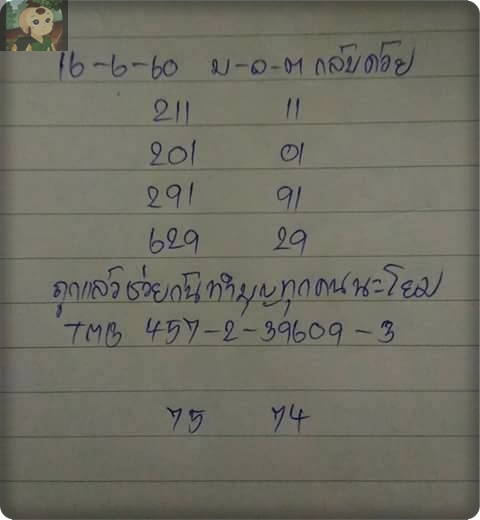 16-6-60 บ-ล-ต กลับด้วย
211 11
201 01
291 91
629 29
ถูกแล้วช่วยกันทำบุญทุกคนนะโยม
TMB 457-2-39609-3
75 74